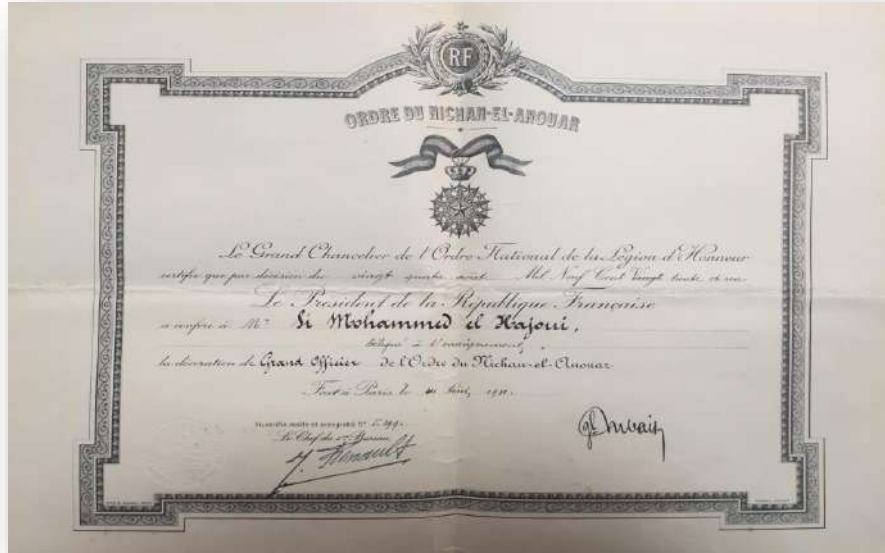 RF
ORDRE DU NICHAN-EL-ANOUAR
Le Grand Chancelier de l'Ordre National de la Légion d'Honneur
certifie que par décision du vingt quatre août Mil Neuf Cent
Le Président de la République Française
a conféré à Mr Si Mohammed el Hajoui,
délégué à l'enseignement,
la décoration de Grand Officier de l'Ordre du Nichan-el-Anouar
Fait à Paris le
Vu, scellé et enregistré N°
Le Chef du 1er Bureau